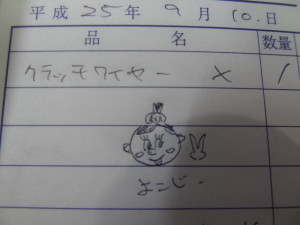 平成 25年 9月 10.日
品名 数量
クラッチワイヤー × 1
よこじー